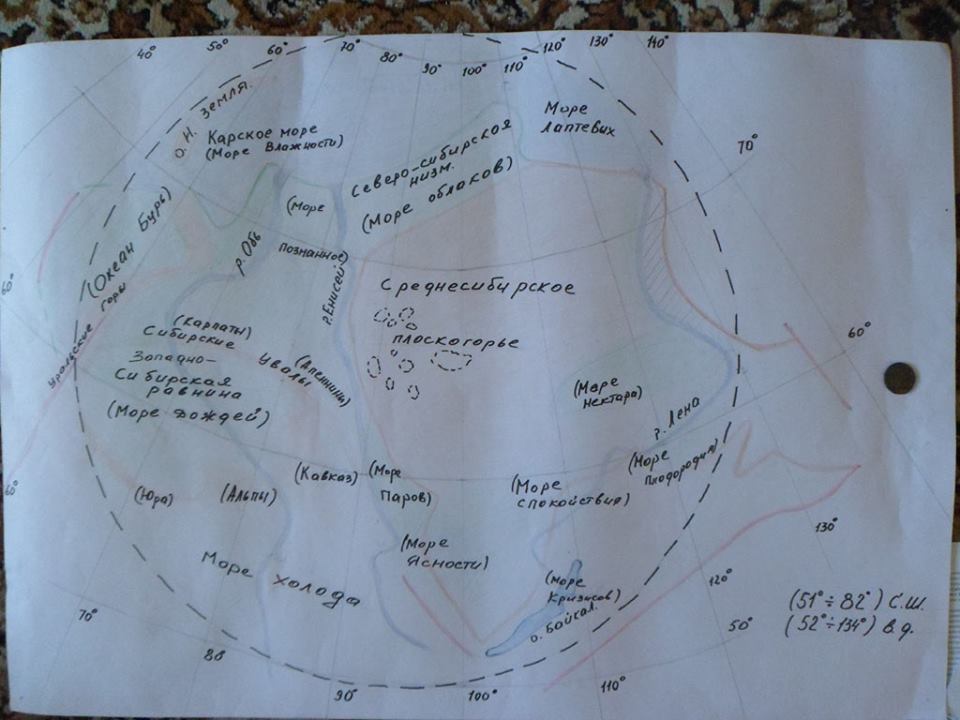 40°
50°
60°
70°
80°
90°
100°
110°
120°
130°
140°
70°
о. Н. Земля.
Карское море
(Море Влажности)
Море
Лаптевых
Северо-сибирская
низм.
(Море облаков)
(Море
познанное)
(Океан Бурь)
р. Обь
р. Енисей
60°
Уральские горы
Среднесибирское
плоскогорье
60°
(Карпаты)
Сибирские
Увалы
(Апеннины)
Западно-
Сибирская
равнина
(Море Дождей)
(Море
Нектара)
р. Лена
(Море
Плодородия)
60°
(Юра)
(Альпы)
(Кавказ)
(Море
Паров)
(Море
спокойствия)
(Море
Ясности)
Море холода
(Море
Кризисов)
о. Байкал.
130°
120°
(51° ÷ 82°) С.Ш.
(52° ÷ 134°) В.д.
70°
80°
90°
100°
110°
50°